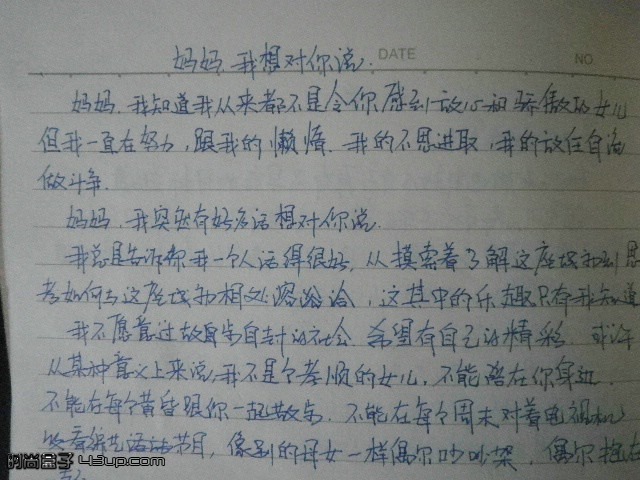 DATE
NO
妈妈,我想对你说.
妈妈.我知道我从来都不是令你感到放心和骄傲的女儿
但我一直在努力,跟我的懒惰.我的不思进取,我的放任自流
做斗争.
妈妈,我突然有好多话想对你说.
我总是告诉你我一个人活得很好.从摸索着了解这座城市到思
考如何与这座城市相处溶洽,这其中的乐趣只有我知道
我不愿意过故步自封的社会.希望有自己的精彩.或许
从某种意义上来说,我不是个孝顺的女儿.不能陪在你身边.
不能在每个黄昏跟你一起散步.不能在每个周末对着电视机
综艺 节目,像别的母女一样偶尔吵吵架,偶尔抱在
时尚盒子 43up.com